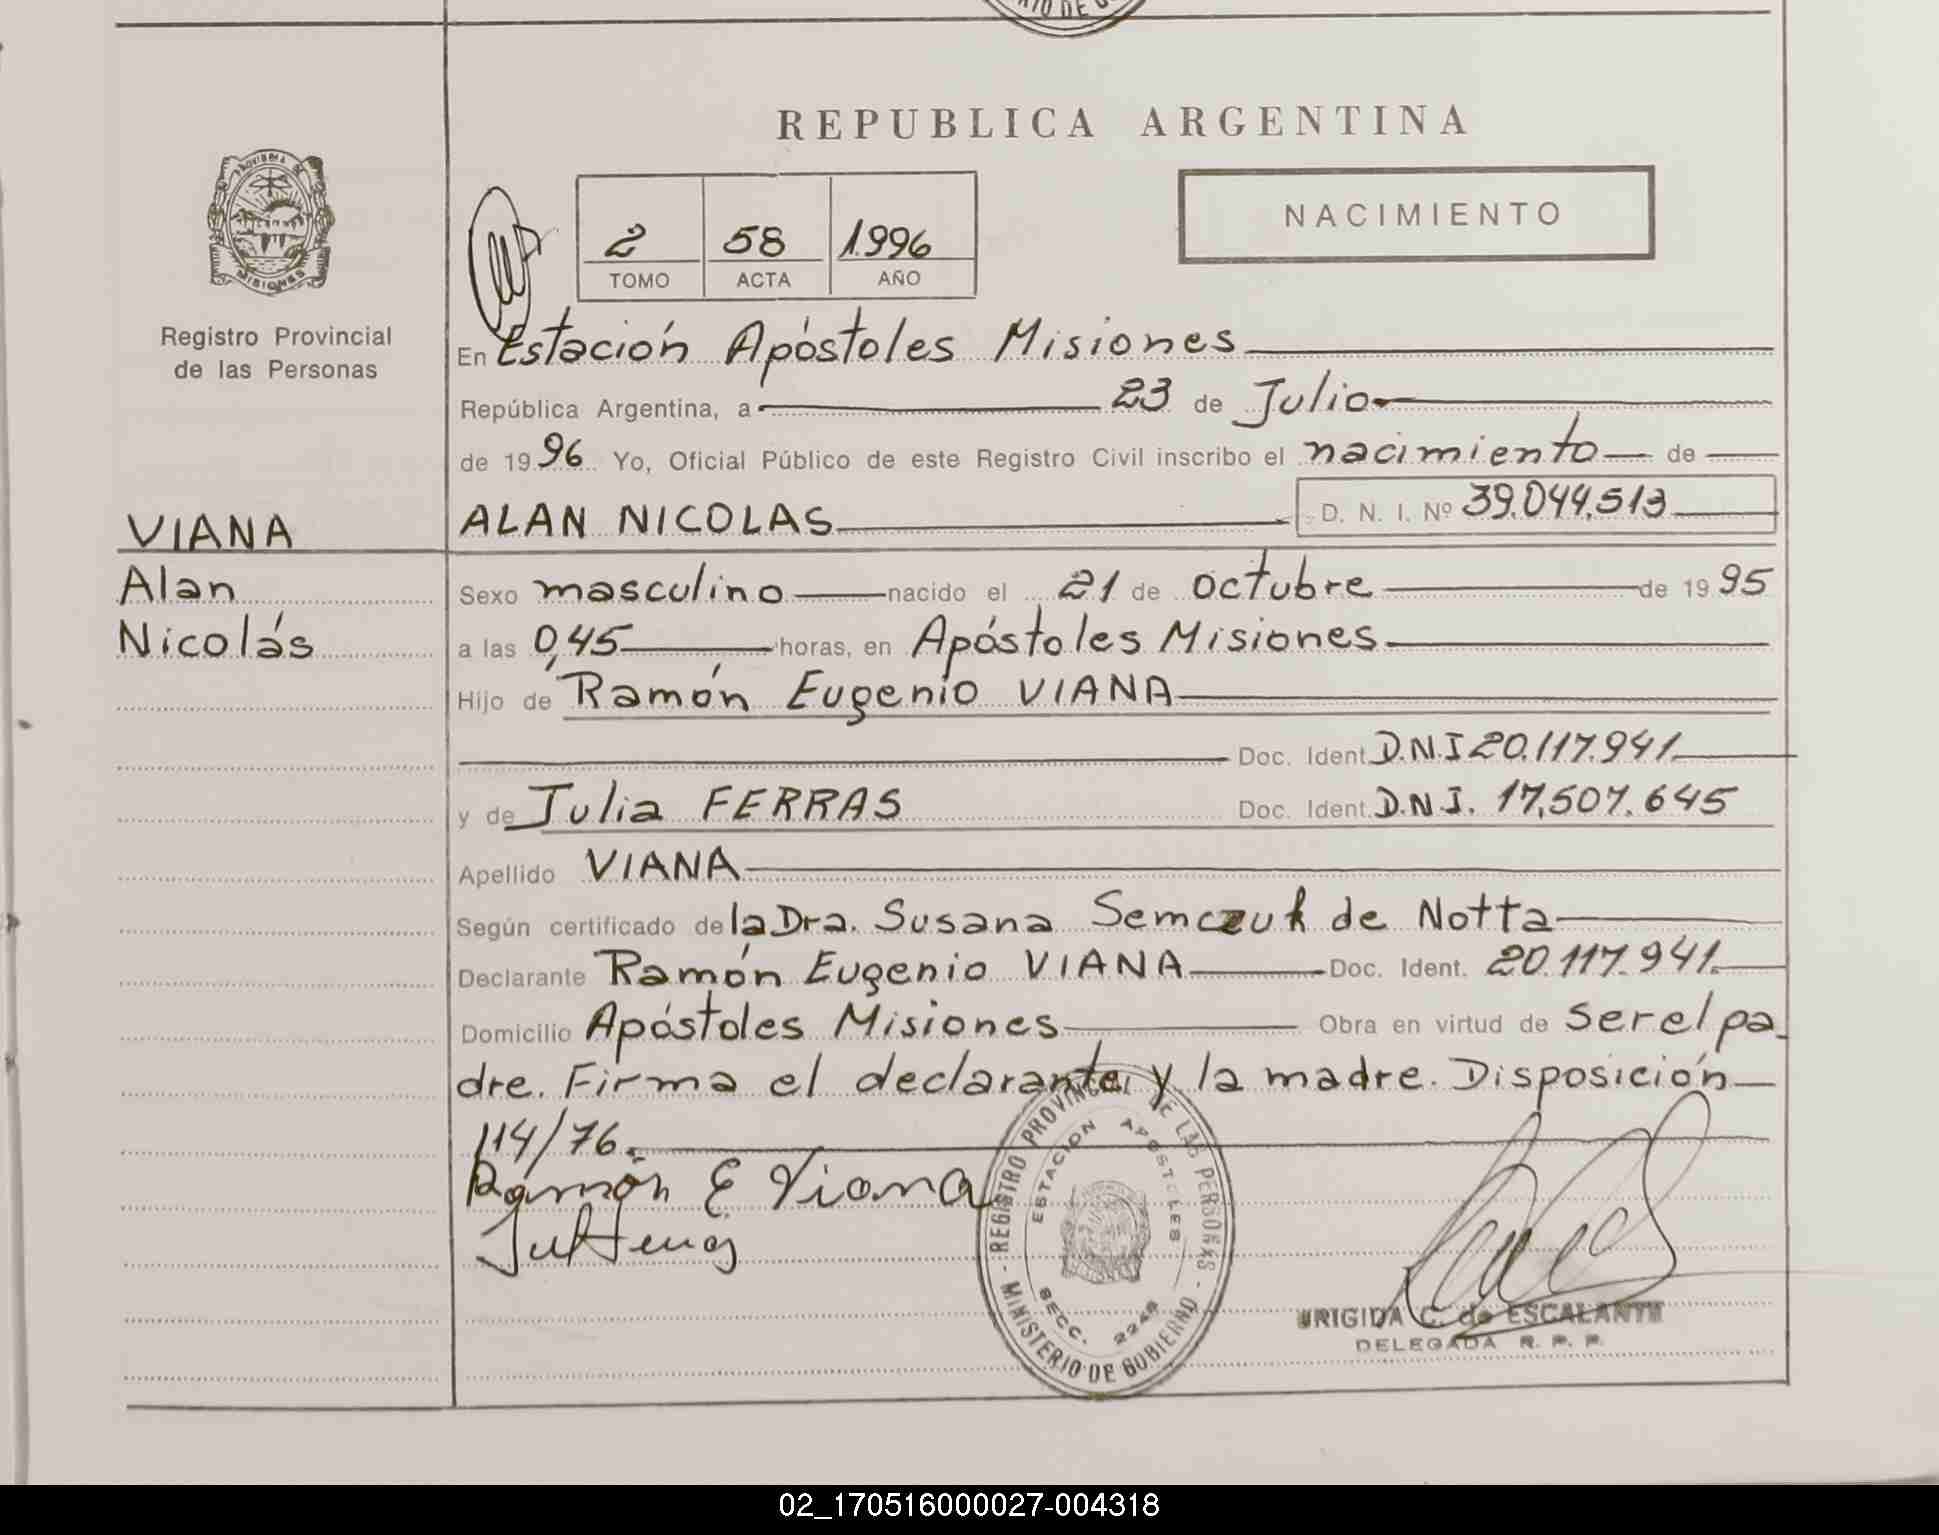 RIO DE G
REPUBLICA ARGENTINA
PROVINCIA DE
MISIONES
Registro Provincial
de las Personas
2 58 1996
TOMO ACTA AÑO
NACIMIENTO
En Estación Apóstoles Misiones
República Argentina, a 23 de Julio
de 1996 Yo, Oficial Público de este Registro Civil inscribo el nacimiento de
VIANA
ALAN NICOLAS D. N. I. Nº 39.044.513
Alan
Sexo masculino nacido el 21 de octubre de 1995
Nicolás
a las 0,45 horas, en Apóstoles Misiones
Hijo de Ramón Eugenio VIANA
Doc. Ident. D.N.I 20.117.941
y de Julia FERRAS Doc. Ident. D.N.I. 17.507.645
Apellido VIANA
Según certificado de la Dra. Susana Semczuk de Notta
Declarante Ramón Eugenio VIANA Doc. Ident. 20.117.941.
Domicilio Apóstoles Misiones Obra en virtud de ser el pa-
dre. Firma el declarante y la madre. Disposición
114/76.
Ramón E Viana
REGISTRO PROVINCIAL DE LAS PERSONAS - MINISTERIO DE GOBIERNO -
ESTACION APOSTOLES
SECC. 2249
BRIGIDA C. de ESCALANTE
DELEGADA R. P. P.
02_170516000027-004318